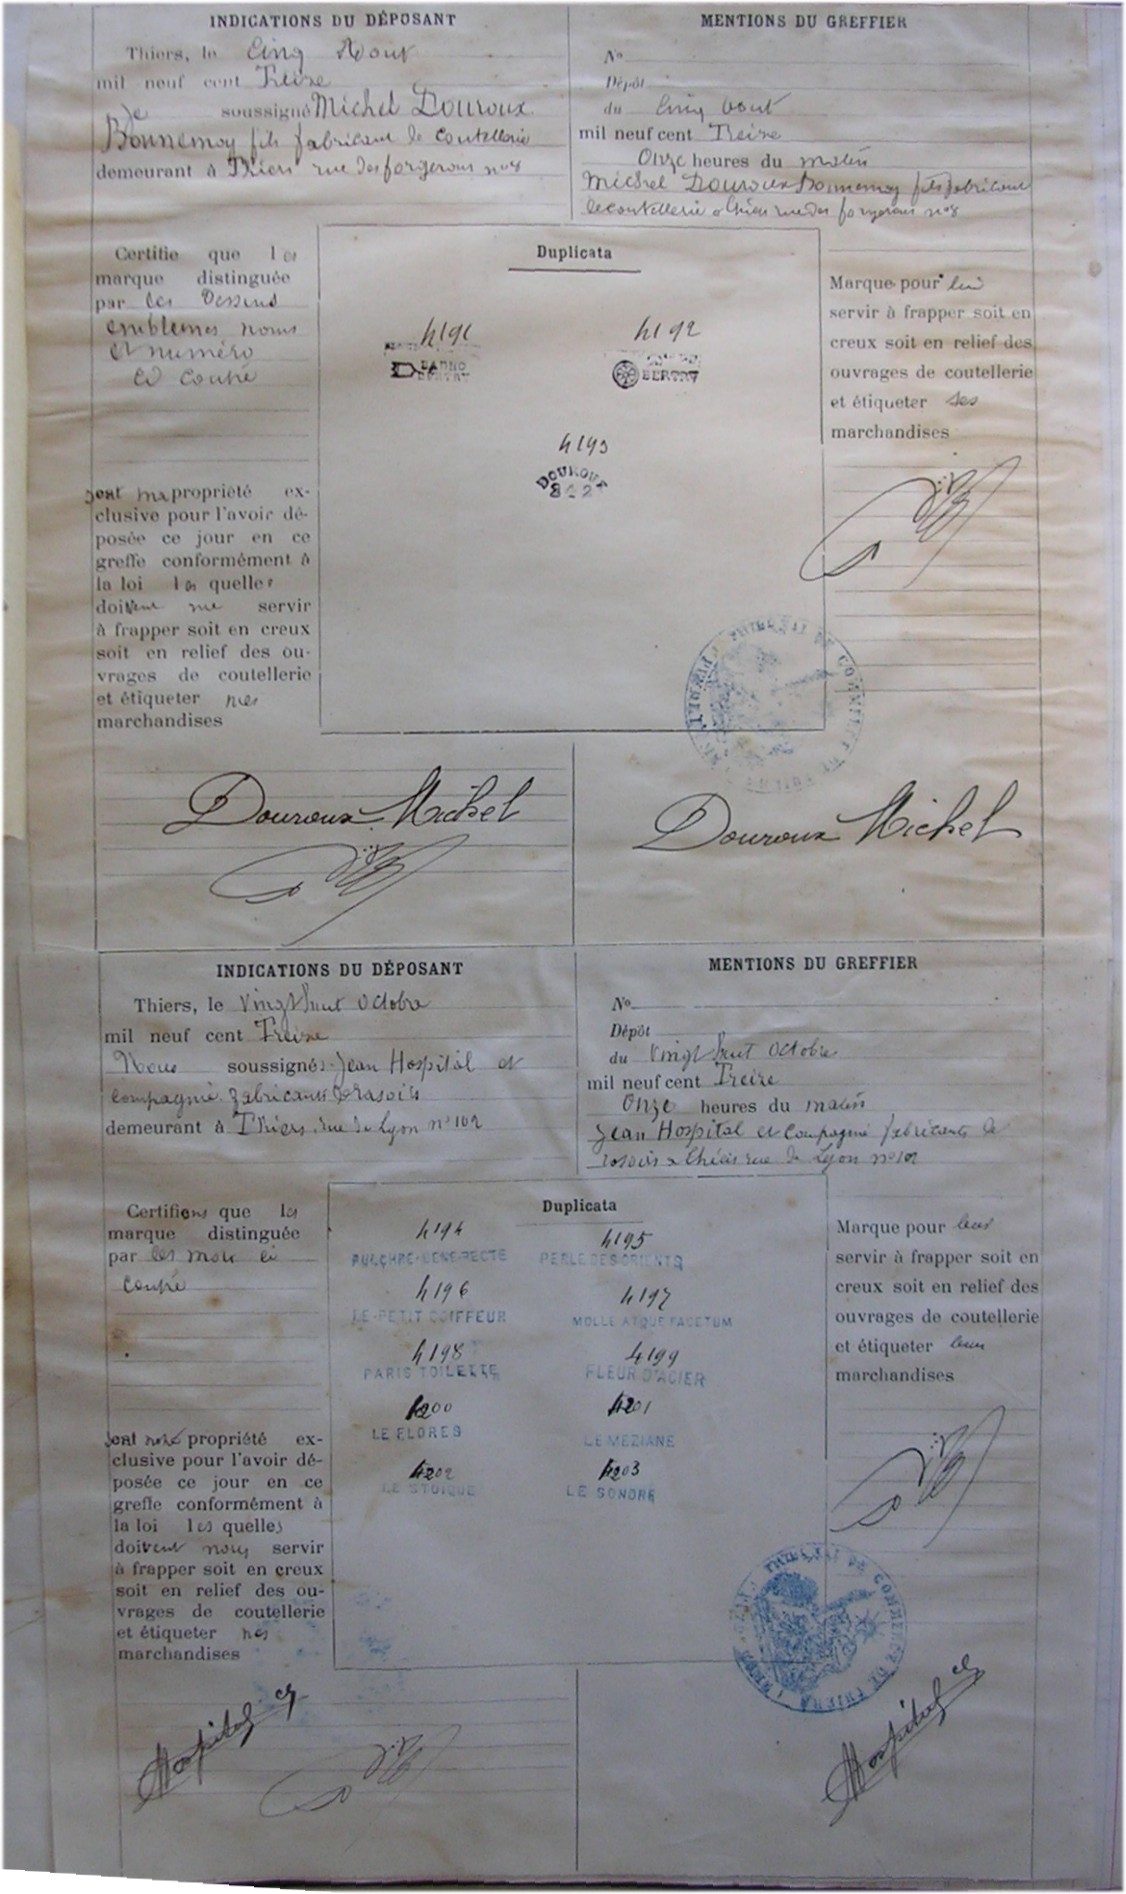 INDICATIONS DU DÉPOSANT
Thiers, le Cinq Aout
mil neuf cent Treize
Je soussigné Michel Douroux
Bonnemoy fils fabricant de coutellerie
demeurant à Thiers rue des forgerons n°8
MENTIONS DU GREFFIER
N°
Dépôt
du Cinq Aout
mil neuf cent Treize
Onze heures du matin
Michel Douroux Bonnemoy fils fabricant
de coutellerie a Thiers rue des forgerons n°8
Certifie que les
marque distinguée
par les Dessins
emblemes noms
et numéro
ci contre
sont ma propriété ex-
clusive pour l'avoir dé-
posée ce jour en ce
greffe conformément à
la loi les quelles
doivent me servir
à frapper soit en creux
soit en relief des ou-
vrages de coutellerie
et étiqueter mes
marchandises
Duplicata
4191
4192
BERTRY
4193
DOUROUX
842
Marque pour lui
servir à frapper soit en
creux soit en relief des
ouvrages de coutellerie
et étiqueter ses
marchandises
TRIBUNAL DE COMMERCE DE THIERS
Douroux Michel
Douroux Michel
INDICATIONS DU DÉPOSANT
Thiers, le Vingt huit Octobre
mil neuf cent Treize
Nous soussignés Jean Hospital et
compagnie fabricants de rasoirs
demeurant à Thiers, rue de Lyon n° 102
MENTIONS DU GREFFIER
N°
Dépôt
du Vingt huit Octobre
mil neuf cent Treize
Onze heures du matin
Jean Hospital et compagnie fabricants de
rasoirs a Thiers rue de Lyon n° 102
Certifions que les
marque distinguée
par les mots ci
contre
sont notre propriété ex-
clusive pour l'avoir dé-
posée ce jour en ce
greffe conformément à
la loi les quelles
doivent nous servir
à frapper soit en creux
soit en relief des ou-
vrages de coutellerie
et étiqueter nos
marchandises
Duplicata
4194
PULCHRE-BENE-RECTE
4195
PERLE DES ORIENTS
4196
LE-PETIT COIFFEUR
4197
MOLLE ATQUE FACETUM
4198
PARIS TOILETTE
4199
FLEUR D'ACIER
4200
LE FLORES
4201
LE MEZIANE
4202
LE STOIQUE
4203
LE SONORE
Marque pour leur
servir à frapper soit en
creux soit en relief des
ouvrages de coutellerie
et étiqueter leurs
marchandises
TRIBUNAL DE COMMERCE DE THIERS
Hospital et
Hospital et